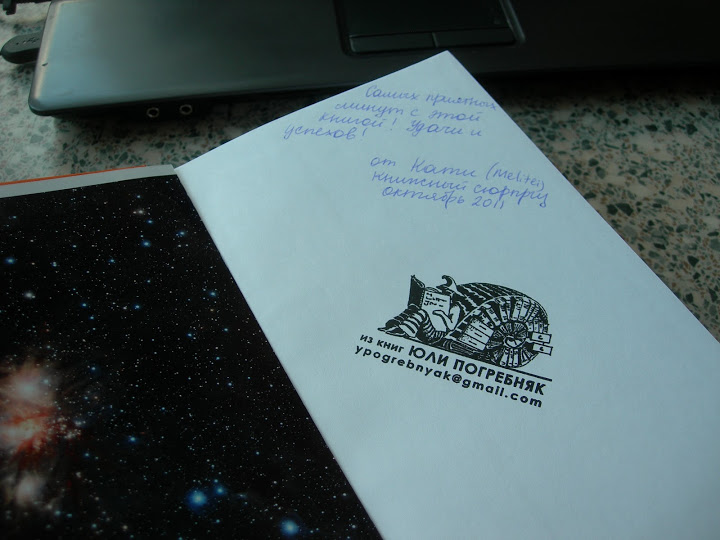 Самых приятных
минут с этой
книгой! Удачи и
успехов!
от Кати (Melitei)
книжный сюрприз
октябрь 2011
из книг ЮЛИ ПОГРЕБНЯК
ypogrebnyak@gmail.com